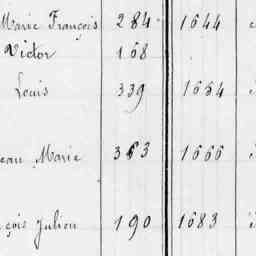 Marie François 284 1644
Victor 168
Louis 339 1664
ean Marie 363 1666
çois Julien 190 1683